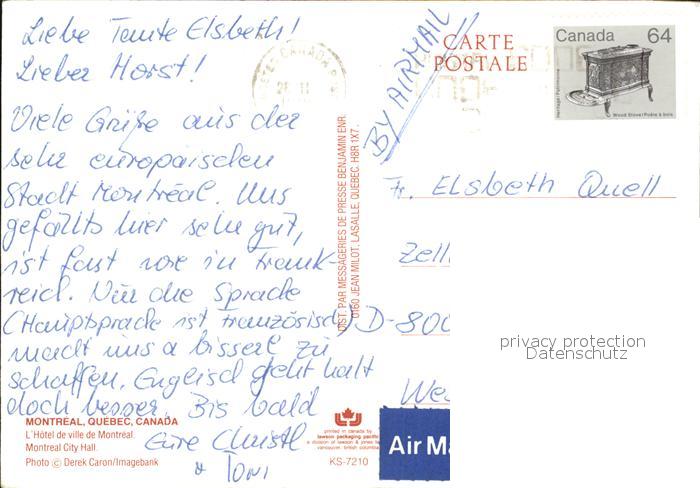 Liebe Tante Elsbeth!
Lieber Horst!
Viele Grüße aus der
sehr europäischen
Stadt Montréal. Uns
gefällts hier sehr gut,
ist fast wie in Frank-
reich. Nur die Sprache
(Hauptsprache ist Französisch)
macht uns a bisserl zu
schaffen. Englisch geht halt
doch besser. Bis bald
Eure Christl
& Toni
MONTRÉAL, QUÉBEC, CANADA
L'Hôtel de ville de Montréal
Montreal City Hall
Photo © Derek Caron/Imagebank
printed in canada by
lawson packaging pacific
a division of lawson & jones
vancouver, british columbia
KS-7210
DIST. PAR MESSAGERIES DE PRESSE BENJAMIN ENR.
0160 JEAN MILOT, LASALLE, QUEBEC. H8R 1X7.
BY AIRMAIL
CARTE
POSTALE
CANADA
Canada 64
Heritage / Patrimoine
Wood Stove / Poêle à bois
Fr. Elsbeth Quell
Zell
D-800
We
privacy protection
Datenschutz
Air Ma